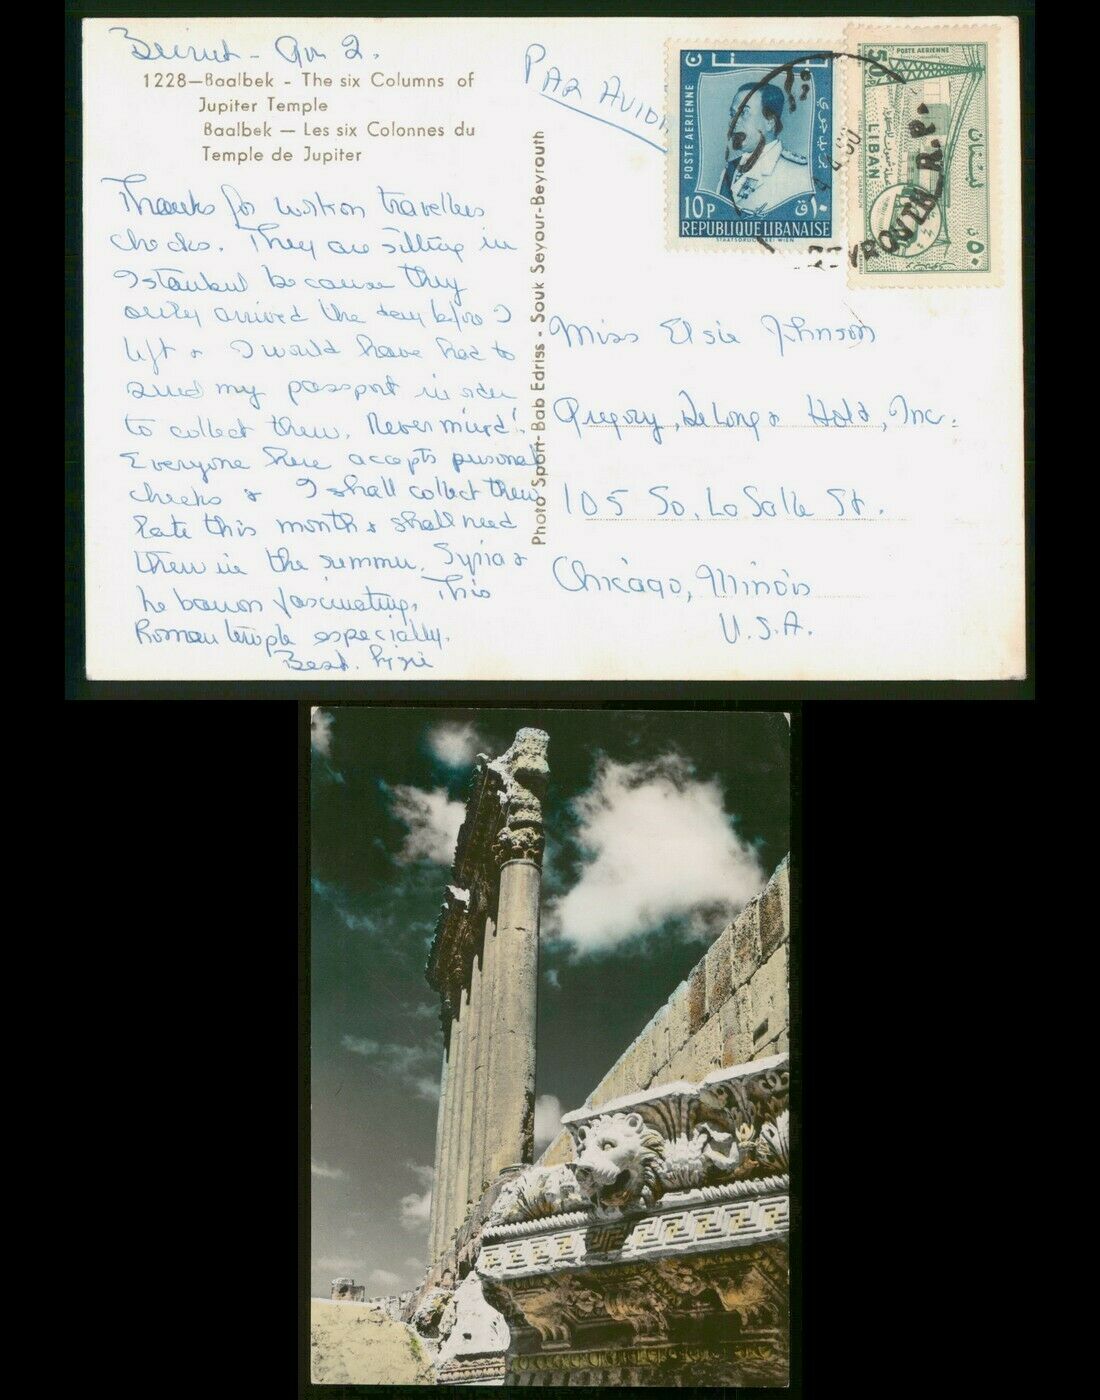 Beirut - 2.
1228—Baalbek - The six Columns of
Jupiter Temple
Baalbek — Les six Colonnes du
Temple de Jupiter
PAR AVION
POSTE AERIENNE
10 P
REPUBLIQUE LIBANAISE
STAATSDRUCKEREI WIEN
لبنان
بريد جوي
١٠ ق
50P
POSTE AERIENNE
LIBAN
لبنان
BEYROUTH R.P.
Thanks for travellers
checks. They are sitting in
Istanbul because they
only arrived the day before I
left & I would have had to
send my passport in order
to collect them. Never mind!
Everyone here accepts personal
checks & I shall collect them
late this month & shall need
them in the summer. Syria &
Lebanon fascinating. This
Roman temple especially.
Best.
Photo Sport-Bab Edriss - Souk Seyour-Beyrouth
Miss Elsie Johnson
Gregory, DeLong & Hold, Inc.
105 So. La Salle St.
Chicago, Illinois
U.S.A.